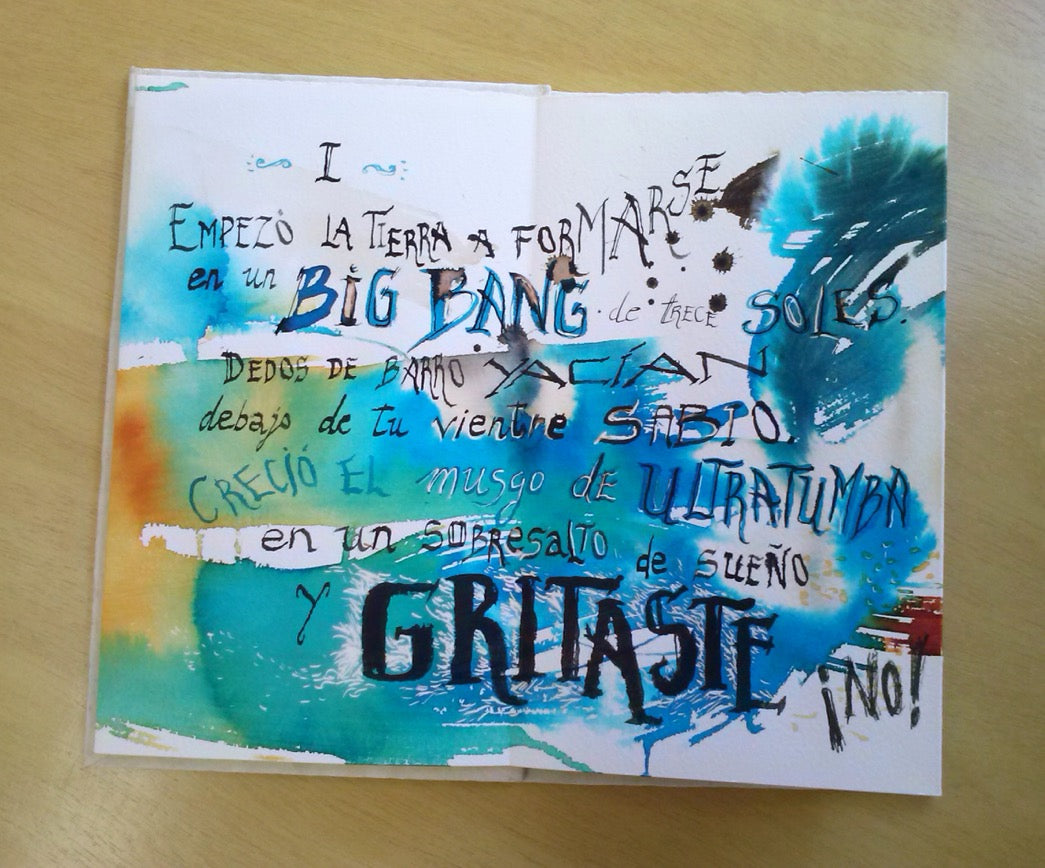 I
EMPEZÓ LA TIERRA A FORMARSE
en un BIG BANG de TRECE SOLES.
DEDOS DE BARRO YACÍAN
debajo de tu vientre SABIO.
CRECIÓ EL musgo de ULTRATUMBA
en un SOBResalto de SUEÑO
Y GRITASTE ¡NO!